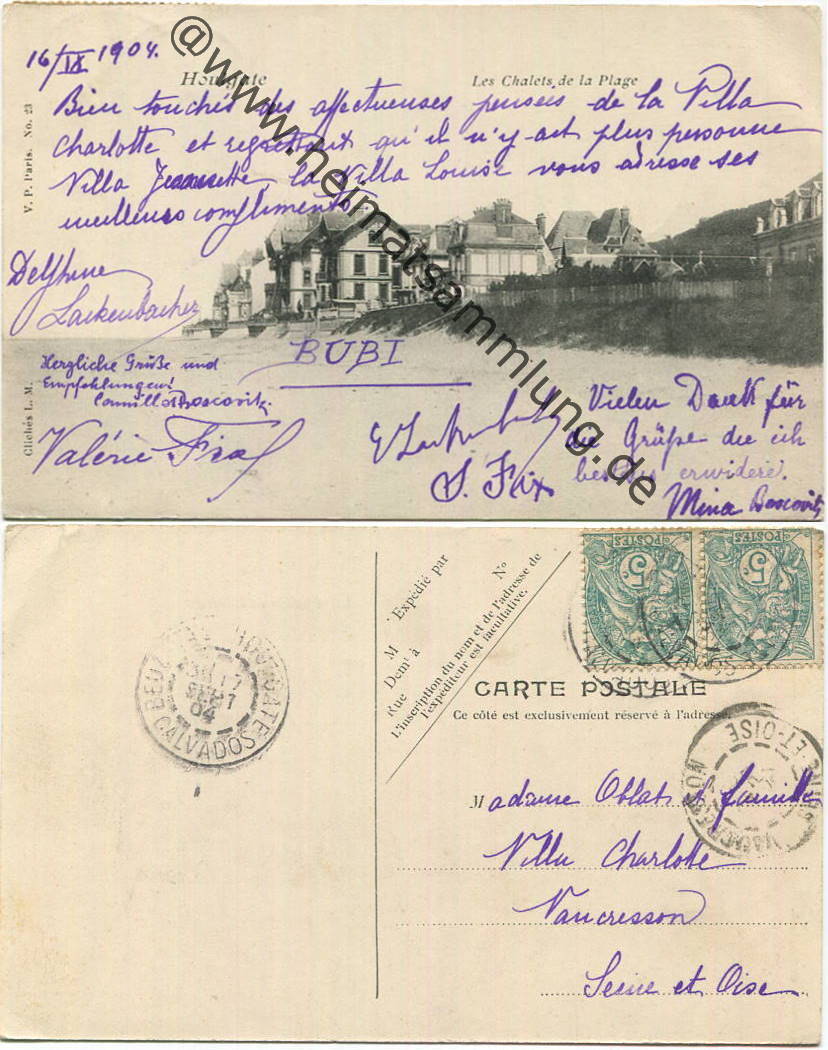 16/IX 1904.
Houlgate
Les Chalets de la Plage
V. P. Paris. No. 23
Bien touchés des affectueuses pensées de la Villa
Charlotte et regrettant qu'il n'y ait plus personne
Villa Jeannette, la Villa Louise vous adresse ses
meilleurs compliments.
Delphine
Lackenbacher
BUBI
Herzliche Grüße und
Empfehlungen!
Boscovitz
Clichés L. M.
Valérie
Vielen Dank für
die Grüße die ich
bestens erwidere.
Mina Boscovitz
@www.heimatsammlung.de
M Expédié par
Demt à
Rue
No
L'inscription du nom et de l'adresse de
l'expéditeur est facultative.
POSTES
5c
POSTES
5c
BEUZEVAL HOULGATE
17
SEPT
04
CALVADOS
CARTE POSTALE
Ce côté est exclusivement réservé à l'adresse.
VAUCRESSON
SEINE-ET-OISE
Madame Oblat & famille
Villa Charlotte
Vaucresson
Seine et Oise